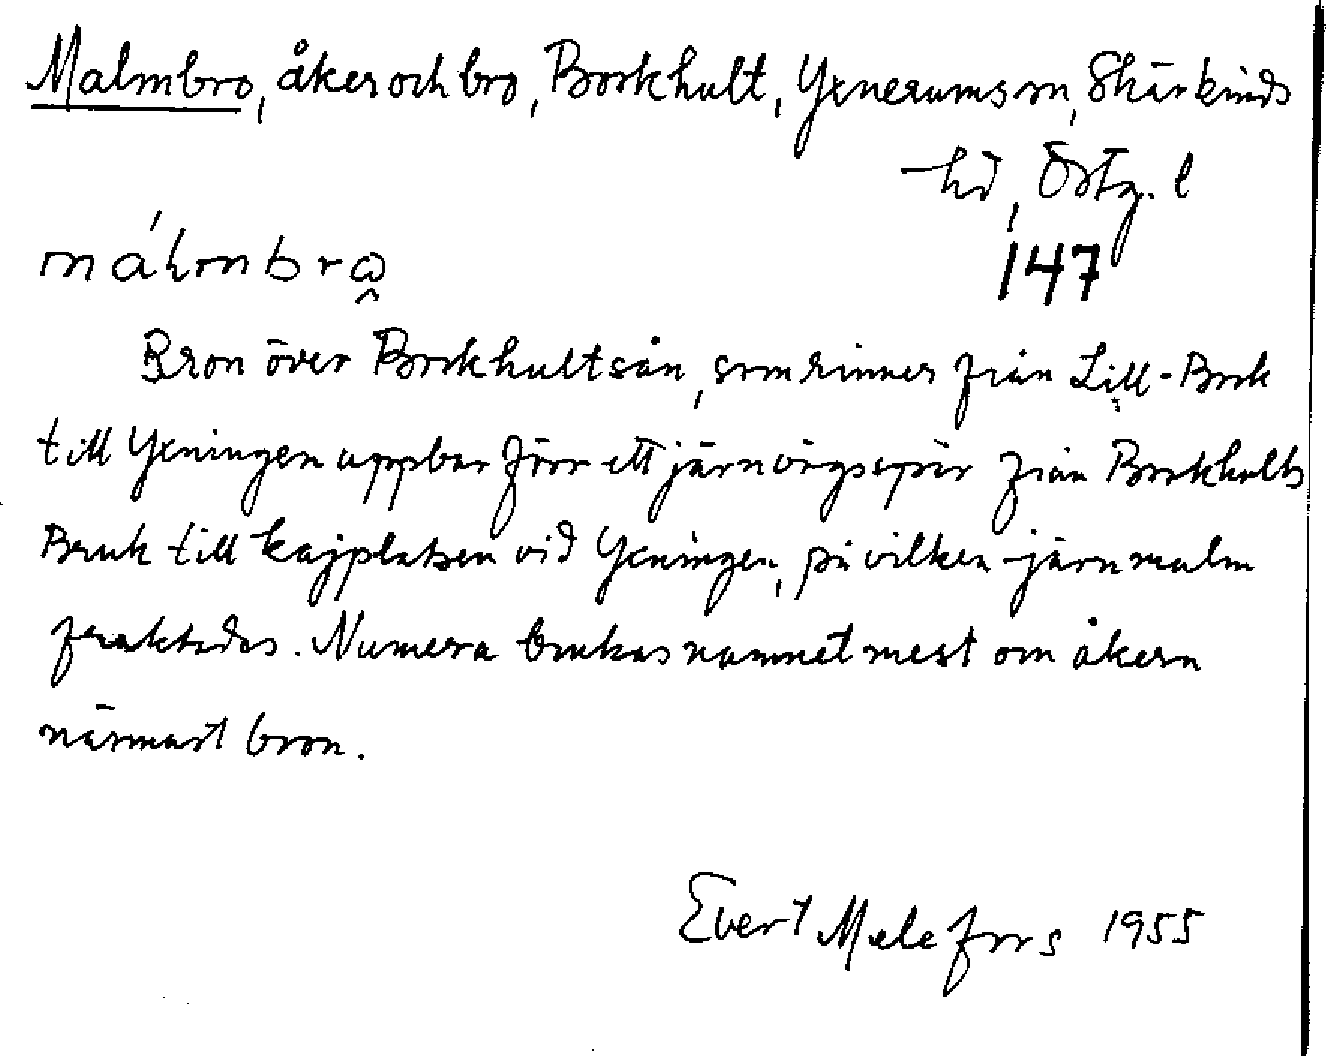 Malmbro, åker och bro, Borkhult, Yxnerums sn, Skärkinds
hd, Östg. l
147
Bron över Borkhultsån, som rinner från Lill-Bork
till Yxningen uppbar förr ett järnvägsspår från Borkhults
Bruk till kajplatsen vid Yxningen, på vilken järnmalm
fraktades. Numera brukas namnet mest om åkern
närmast bron.
Evert Melefors 1955